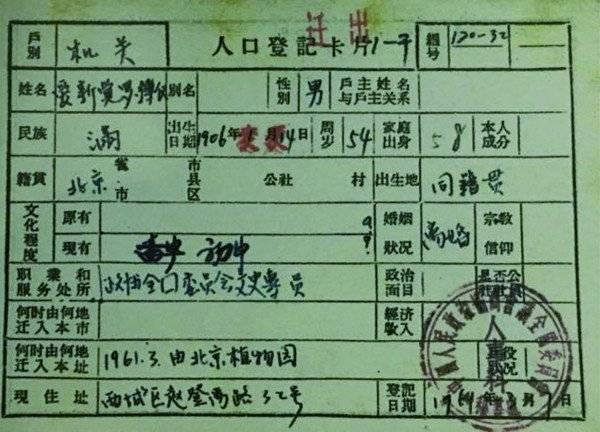 戶別 机关 人口登記卡片 1-于 迁出 編号 120-32
姓名 爱新觉罗 別名 性別 男 戶主姓名与戶主关系
民族 满 出生日期 1906年 月14日 周岁 54 家庭出身 本人成分
籍貫 北京 省市 市县区 公社 村 出生地 同籍贯
文化程度 原有 婚姻狀況 宗教信仰
現有 初中
职業和服务处所 政协全囗委员会文史專员 政治面目 是否公社社員
何时由何地迁入本市 經济收入
何时由何地迁入本址 1961.3.由北京植物园
現住址 西城区赵登禹路32号 登記日期 1961年3月7日
人事科